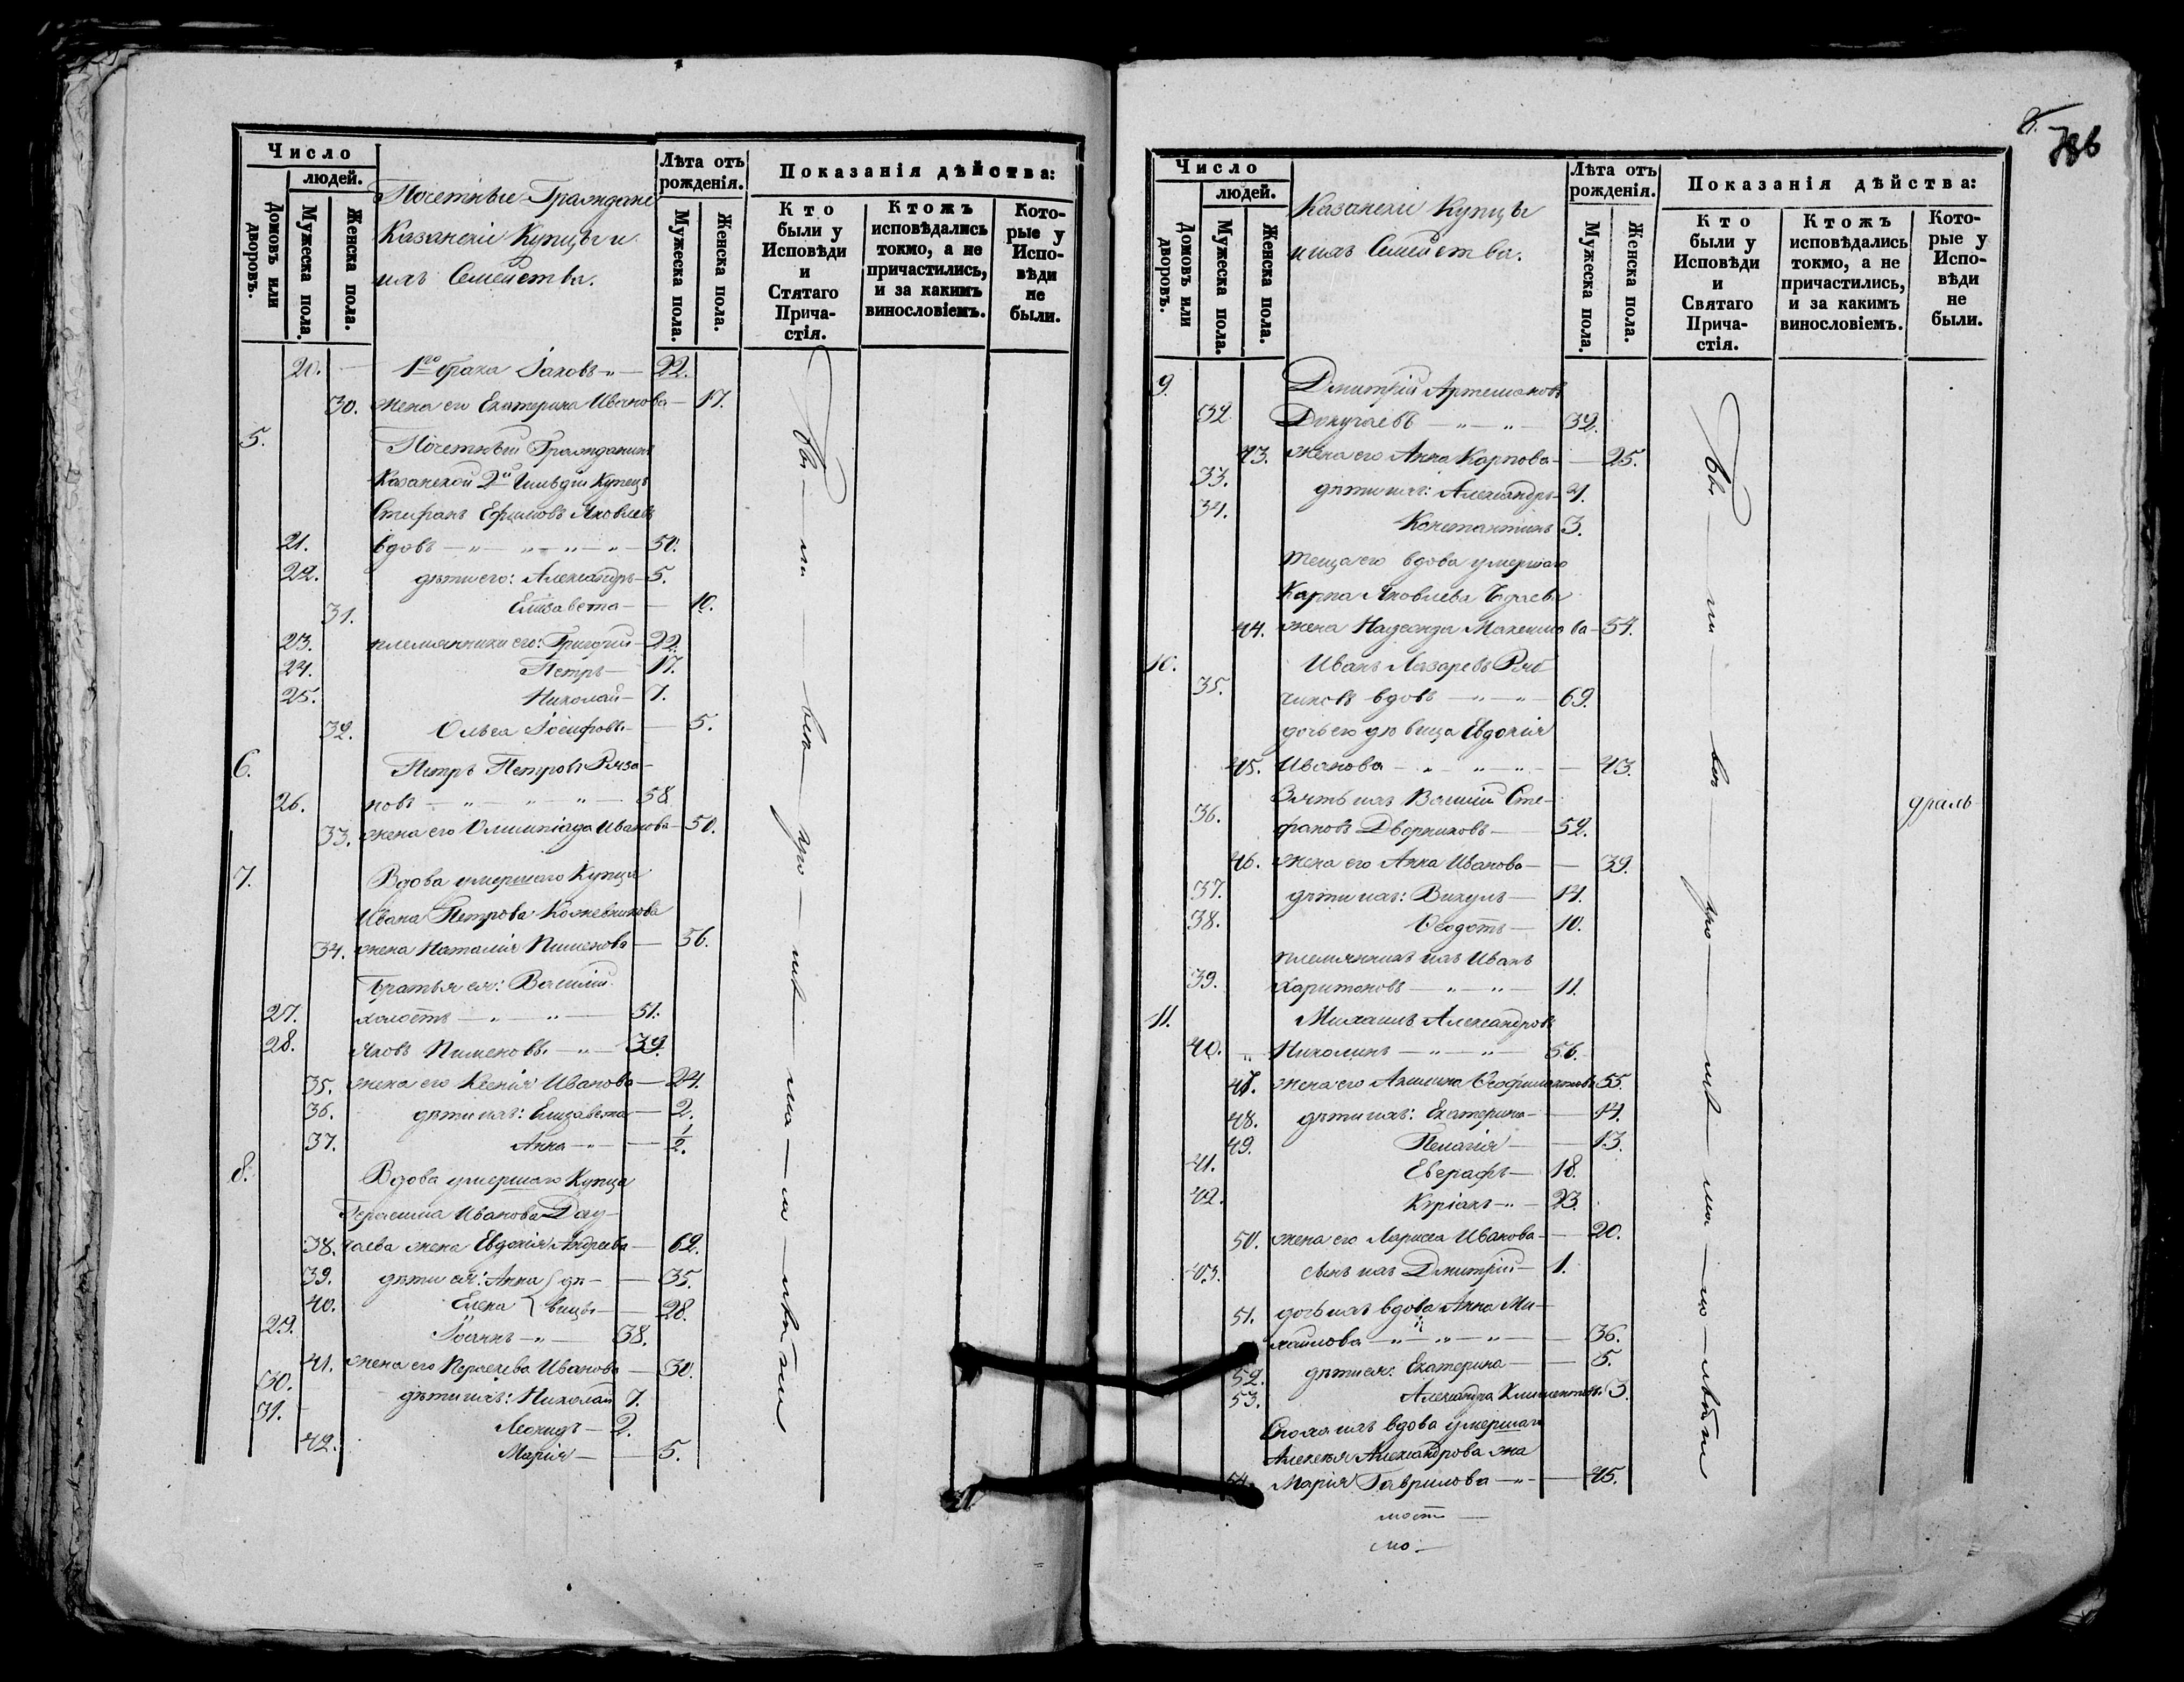 Число
людей.
Домовъ или дворовъ.
Мужеска пола.
Женска пола.
Почетные Граждане
Казанскіе Купцы и
ихъ Семейства.
Лѣта отъ рожденія.
Мужеска пола.
Женска пола.
Показанія дѣйства:
Кто были у Исповѣди и Стятаго Прича-стія.
Ктожъ исповѣдались токмо, а не причастились, и за какимъ винословіемъ.
Кото-рые у Испо-вѣди не были.
20. 1го брака Іаковъ 22.
30. жена его Екатерина Иванова 17.
5. Почетный Гражданинъ
Казанской 2й Гильдіи Купецъ
Стефанъ Ефимовъ Яковлевъ
21. вдовъ 50.
22. дѣти его: Александръ 5.
31. Елизавета 10.
23. племянники его: Григорій 22.
24. Петръ 17.
25. Николай 7.
32. Ольга Іосифовы 5.
6. Петръ Петровъ Ряза-
26. новъ 58.
33. жена его Олимпіада Иванова 50.
7. Вдова умершаго Купца
Ивана Петрова Кожевникова
34. жена Наталія Пименова 56.
Братья ея: Василій
27. холостъ 51.
28. Яковъ Пименовы 39.
35. жена его Ксенія Иванова 24.
36. дѣти ихъ: Елизавета 2.
37. Анна 1/2.
8. Вдова умершаго Купца
Герасима Иванова Доку-
38. чаева жена Евдокія Андреева 62.
39. дѣти ея: Анна дѣ- 35.
40. Елена вицы 28.
29. Іоаннъ 38.
41. жена его Параскева Иванова 30.
30. дѣти ихъ: Николай 7.
31. Леонидъ 2.
42. Марія 5.
786
Число
людей.
Домовъ или дворовъ.
Мужеска пола.
Женска пола.
Казанскіе Купцы
и ихъ Семейства.
Лѣта отъ рожденія.
Мужеска пола.
Женска пола.
Показанія дѣйства:
Кто были у Исповѣди и Святаго Прича-стія.
Ктожъ исповѣдались токмо, а не причастились, и за какимъ винословіемъ.
Кото-рые у Испо-вѣди не были.
9. Дмитрій Артемоновъ
32. Докучаевъ 32.
43. жена его Анна Карпова 25.
33. дѣти ихъ: Александръ 4.
34. Константинъ 3.
теща его вдова умершаго
Карпа Яковлева
44. жена Надежда Максимова 54.
10. Иванъ Лазаревъ Ряб-
35. чиковъ вдовъ 69.
дочь его дѣвица Евдокія
45. Иванова 43.
Зять ихъ Василій Сте-
36. фановъ Дворниковъ 52.
46. жена его Анна Иванова 39.
37. дѣти ихъ: Викулъ 14.
38. Ѳеодотъ 10.
племянникъ ихъ Иванъ
39. Харитоновъ 11.
11. Михаилъ Александровъ
40. Николинъ 56.
47. жена его Акилина Ѳеофилактова 55.
48. дѣти ихъ: Екатерина 14.
49. Пелагія 13.
41. Евграфъ 18.
42. Киріакъ 23.
50. жена его Лариса Иванова 20.
43. сынъ ихъ Дмитрій 1.
51. дочь ихъ вдова Анна Ми-
хайлова 36.
52. дѣти ея: Екатерина 5.
53. Александра Климентовы 3.
Сноха ихъ вдова умершаго
Алексѣя Александрова жна
54. Марія Гаврилова 45.